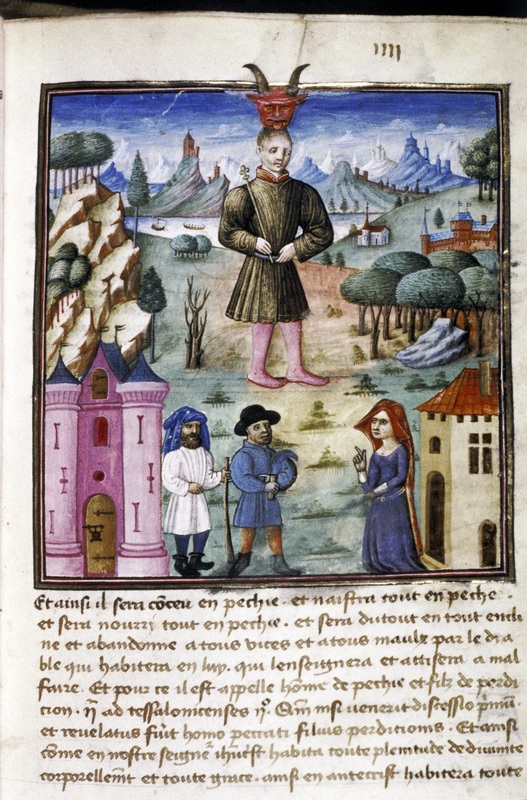 iiii
Et ainsi il sera cõceu en pechie . et naistra tout en peche .
et sera nourri tout en pechie . et sera du tout en tout encli
ne et abandonne a tous vices et a tous maulz par le dia
ble qui habitera en luy . qui lenseignera et attisera a mal
faire . Et pour ce il est appelle hõme de pechie et filz de perdi
cion . ad tessalonicenses Qm̃ nisi venerit discessio pmũ
et revelatus fuit homo peccati filius perditionis . Et ainsi
cõme en nostre seigne ihũcst habita toute plenitude de divinite
corporellemt̃ et toute grace . ainsi en antecrist habitera toute